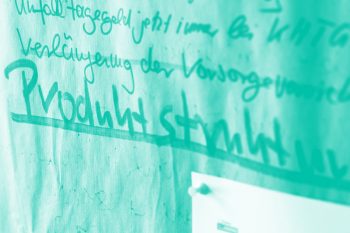 Unfalltagegeld jetzt immer bei KATG
Verlängerung der Vorsorge
Produktstruktur